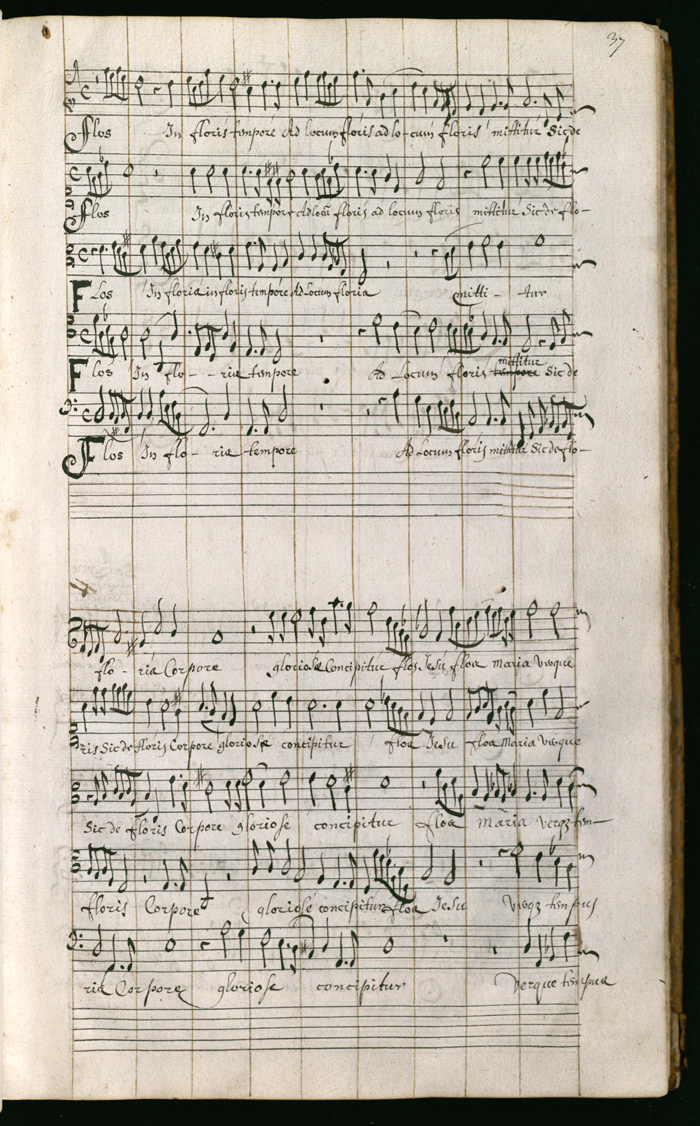 37
Flos In floris tempore Ad locum floris ad lo-cum floris mittitur Sic de
Flos In floris tempore Ad locū floris ad locum floris mittitur Sic de flo-
Flos In floris in floris tempore Ad Locum floris mitti - tur
Flos In flo - - ris tempore Ad Locum floris tempore mittitur Sic de
Flos In flo - ris tempore Ad Locum floris mittitur Sic de flo-
flo - ris Corpore gloriose Concipitur flos Jesu flos Maria
ris Sic de floris Corpore gloriose concipitur flos Jesu flos Maria
Sic de floris Corpore gloriose concipitur flos Maria
floris Corpore gloriose concipitur flos Jesu tempus
ris Corpore gloriose concipitur Verque tempus